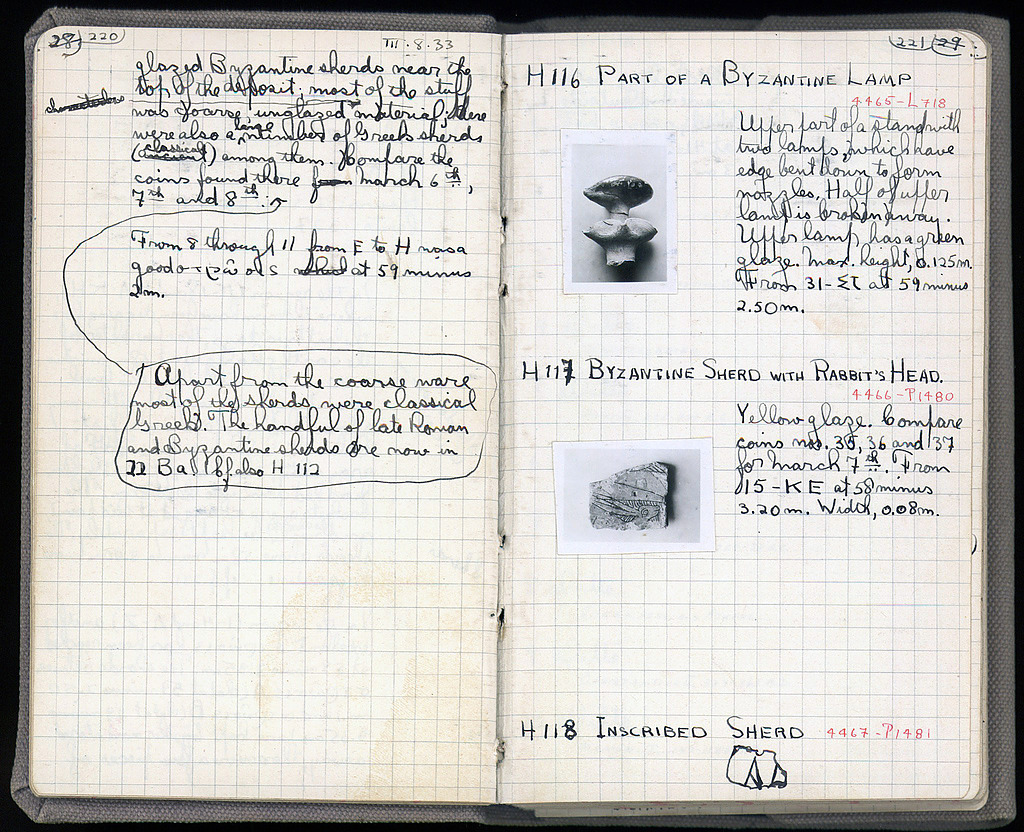 28 220
III.8.33
glazed Byzantine sherds near the
top of the deposit; most of the stuff
was coarse, unglazed material; there
were also a large number of Greek sherds
(classical) among them. Compare the
coins found there March 6th,
7th and 8th.
From 8 through 11 from E to H was a
good at 59 minus
2m.
Apart from the coarse ware
most of the sherds were classical
Greek. The handful of late Roman
and Byzantine sherds are now in
Ba Cf. also H 112
221 29
H116 PART OF A BYZANTINE LAMP
4465-L718
Upper part of a stand with
two lamps, which have
edge bent down to form
nozzles. Half of upper
lamp is broken away.
Upper lamp has a green
glaze. Max. height, 0.125m.
From 31-ΣΤ at 59 minus
2.50m.
H117 BYZANTINE SHERD WITH RABBIT'S HEAD.
4466-P1480
Yellow glaze. Compare
coins nos. 35, 36 and 37
for March 7th. From
15-KE at 58 minus
3.20m. Width, 0.08m.
H118 INSCRIBED SHERD 4467-P1481